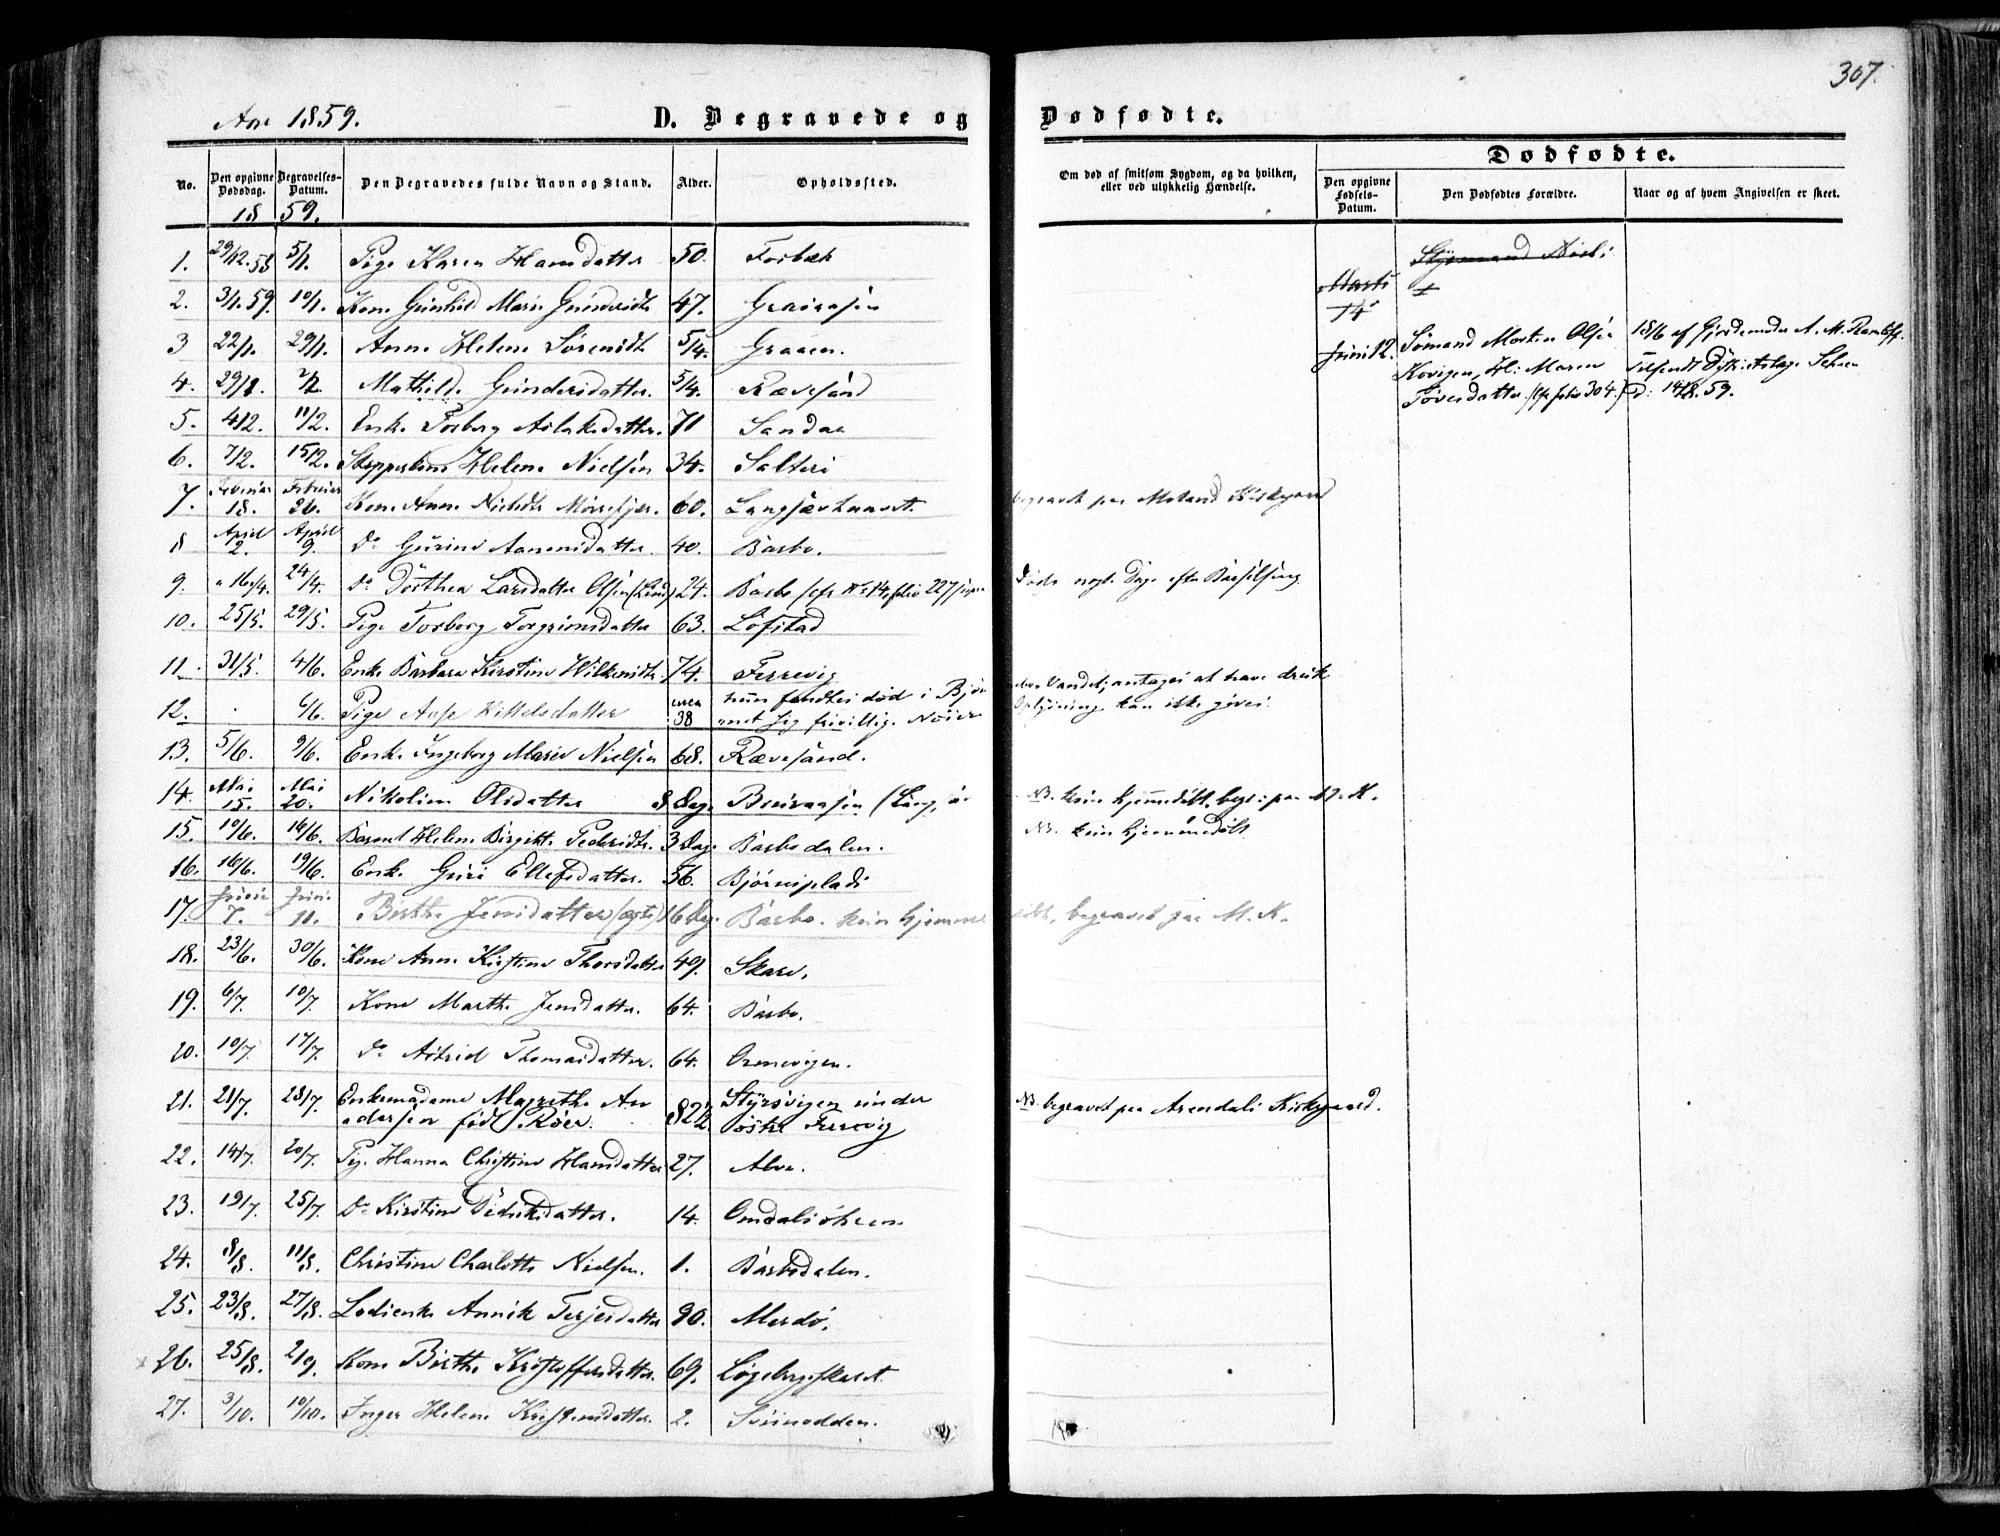 307.
Aar 1859.
D. Begravede og Dødfødte.
Dødfødte.
No.
Den opgivne Dødsdag.
Begravelses-Datum.
Den Begravedes fulde Navn og Stand.
Alder.
Opholdssted.
Om død af smitsom Sygdom, og da hvilken,
eller ved ulykkelig Hændelse.
Den opgivne Fødsels-Datum.
Den Dødfødtes Forældre.
Naar og af hvem Angivelsen er skeet.
18 59.
1. 29/12.58 5/1. Pige Karen Hansdatter 50. Torbæk
2. 3/1.59. 10/1. Kone Gunhild Marie 47.
3 22/1. 29/1. Anne Helene 5/4. Graaen.
4. 29/1. 2/2. Mathilde Gundersdatter. 5/4. Rævesand
5. 4/2. 11/2. Enke Torborg Aslaksdatter. 71 Sandaa
6. 7/2. 15/2. Helene Nielsen 34. Salteri
7. Februar 18. Februar 26. Kone Anne 60.
begravet paa Moland Kirkegaard
8 April 2. April 9. Do Gurine Aanensdatter. 40. Barbo.
9. 16/4. 24/4. Do Dorthea Larsdatter Olsen (Lund) 24. Barbo (cfr No 14, folio 227)
Døde nogle Dage efter Barselseng.
10. 25/5. 29/5. Pige Torborg Torgrimsdatter 63. Løfstad
11. 31/5 4/6. Enke Barbara Kirstine 74. Terrevig
12. 6/6. Pige Aase Kittelsdatter circa 38 hun fandtes død i
Vandet; antages at have druk
net sig frivillig. Nøiere Oplysning kan ikke gives.
13. 5/6. 9/6. Enke Ingeborg Marie Nielsen 68. Rævesand.
14. Mai 15. Mai 20. Nikoline Olsdatter 8 Dage
NB. kun hjemmedøbt, begr: paa M. K.
15. 10/6. 14/6. Barnet Helene Birgitte 3 Dage Barbodalen.
NB. kun hjemmedøbt
16. 16/6. 19/6. Enke Guri Ellefsdatter. 56. Bjørnsplads
17. Juni 7. Juni 11. Birthe Jensdatter (ægte) 16 Dage. Barbo. kun hjemme
døbt, begravet paa M. K.
18. 23/6. 30/6. Kone Anne Kirstine Thorsdatter 49. Skare.
19. 6/7. 10/7. Kone Marthe Jensdatter. 64. Barbo.
20. 10/7. 17/7. Do Astrid Thomasdatter. 64.
21. 21/7. 28/7. Enkemadame Magrethe An
dersen født Røer. 82½ Styrsvigen under
østre Terrevig
NB. begravet paa Arendals Kirkegaard.
22. 14/7. 20/7. Pige Hanna Christine Hansdatter 27. Alve.
23. 19/7. 25/7. Do Kirstine Didriksdatter. 14.
24. 8/8. 11/8. Christine Charlotte Nielsen. 1. Barbodalen.
25. 23/8. 27/8. Annik Terjesdatter 90. Merdø.
26. 25/8. 2/9. Kone Birthe Kristoffersdatter. 69. Løgebergskaret.
27. 3/10. 10/10. Inger Helene Kristensdatter. 2. Svinodden.
Marts
14
Styrmand
Juni 12. Sømand Morten Olsen
H: Maren
Tøvesdatter. (cfr folio 304.)
18/6 af Gjordemoder A. M.
Tilsendt Distriktslæge
D: 14/8. 59.